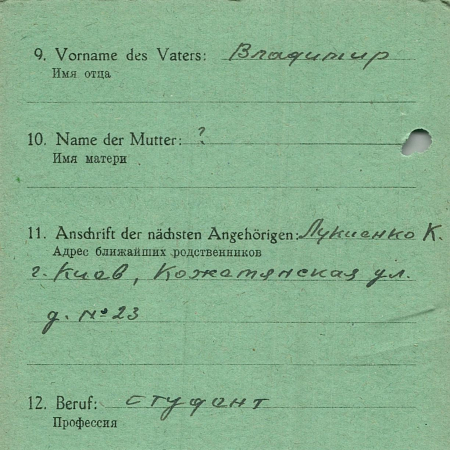 9. Vorname des Vaters: Владимир
Имя отца
10. Name der Mutter: ?
Имя матери
11. Anschrift der nächsten Angehörigen: Лукиенко К.
Адрес ближайших родственников
г. Киев, Кожемянская ул.
д. № 23
12. Beruf: студант
Профессия